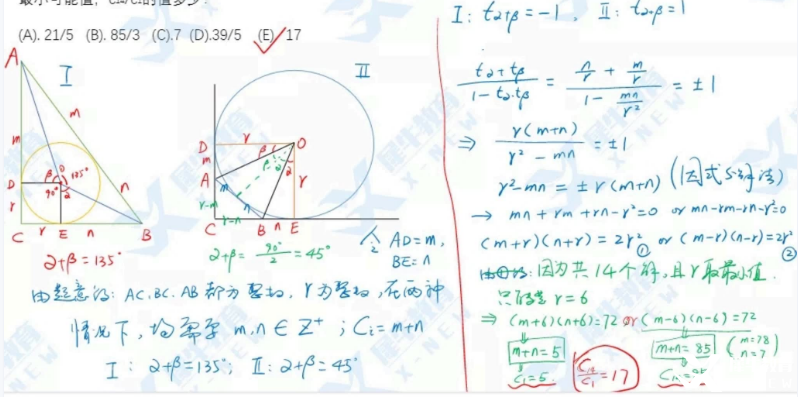 (A). 21/5 (B). 85/3 (C).7 (D).39/5 (E) 17
I
A
m
m
n
D
β
O
135°
90°
α
r
C
r
E
n
B
α+β=135°
II
D
r
O
m
β
α
A
r
m
r-m
n
C
r-n
B
n
E
α+β= 90°/2 =45°
令 AD=m,
BE=n
由题意得: AC, BC, AB 都为整数, r为整数, 在两种
情况下, 均需要 m,n∈Z⁺ ; Ci=m+n
I : α+β=135°; II: α+β=45°
I: tα+β=-1, II: tα+β=1
(tα+tβ)/(1-tα·tβ) = (n/r + m/r)/(1 - mn/r²) = ±1
⇒ r(m+n)/(r²-mn) = ±1
r²-mn = ±r(m+n) (因式分解法)
→ mn+rm+rn-r²=0 or mn-rm-rn-r²=0
(m+r)(n+r)=2r² ① or (m-r)(n-r)=2r² ②
因为共14个解, 且r取最小值
只能是 r=6
⇒ (m+6)(n+6)=72 or (m-6)(n-6)=72
m+n=5
m+n=85 (m=78 n=7)
C₁=5
C₁₄/C₁=17
C₁₄=85